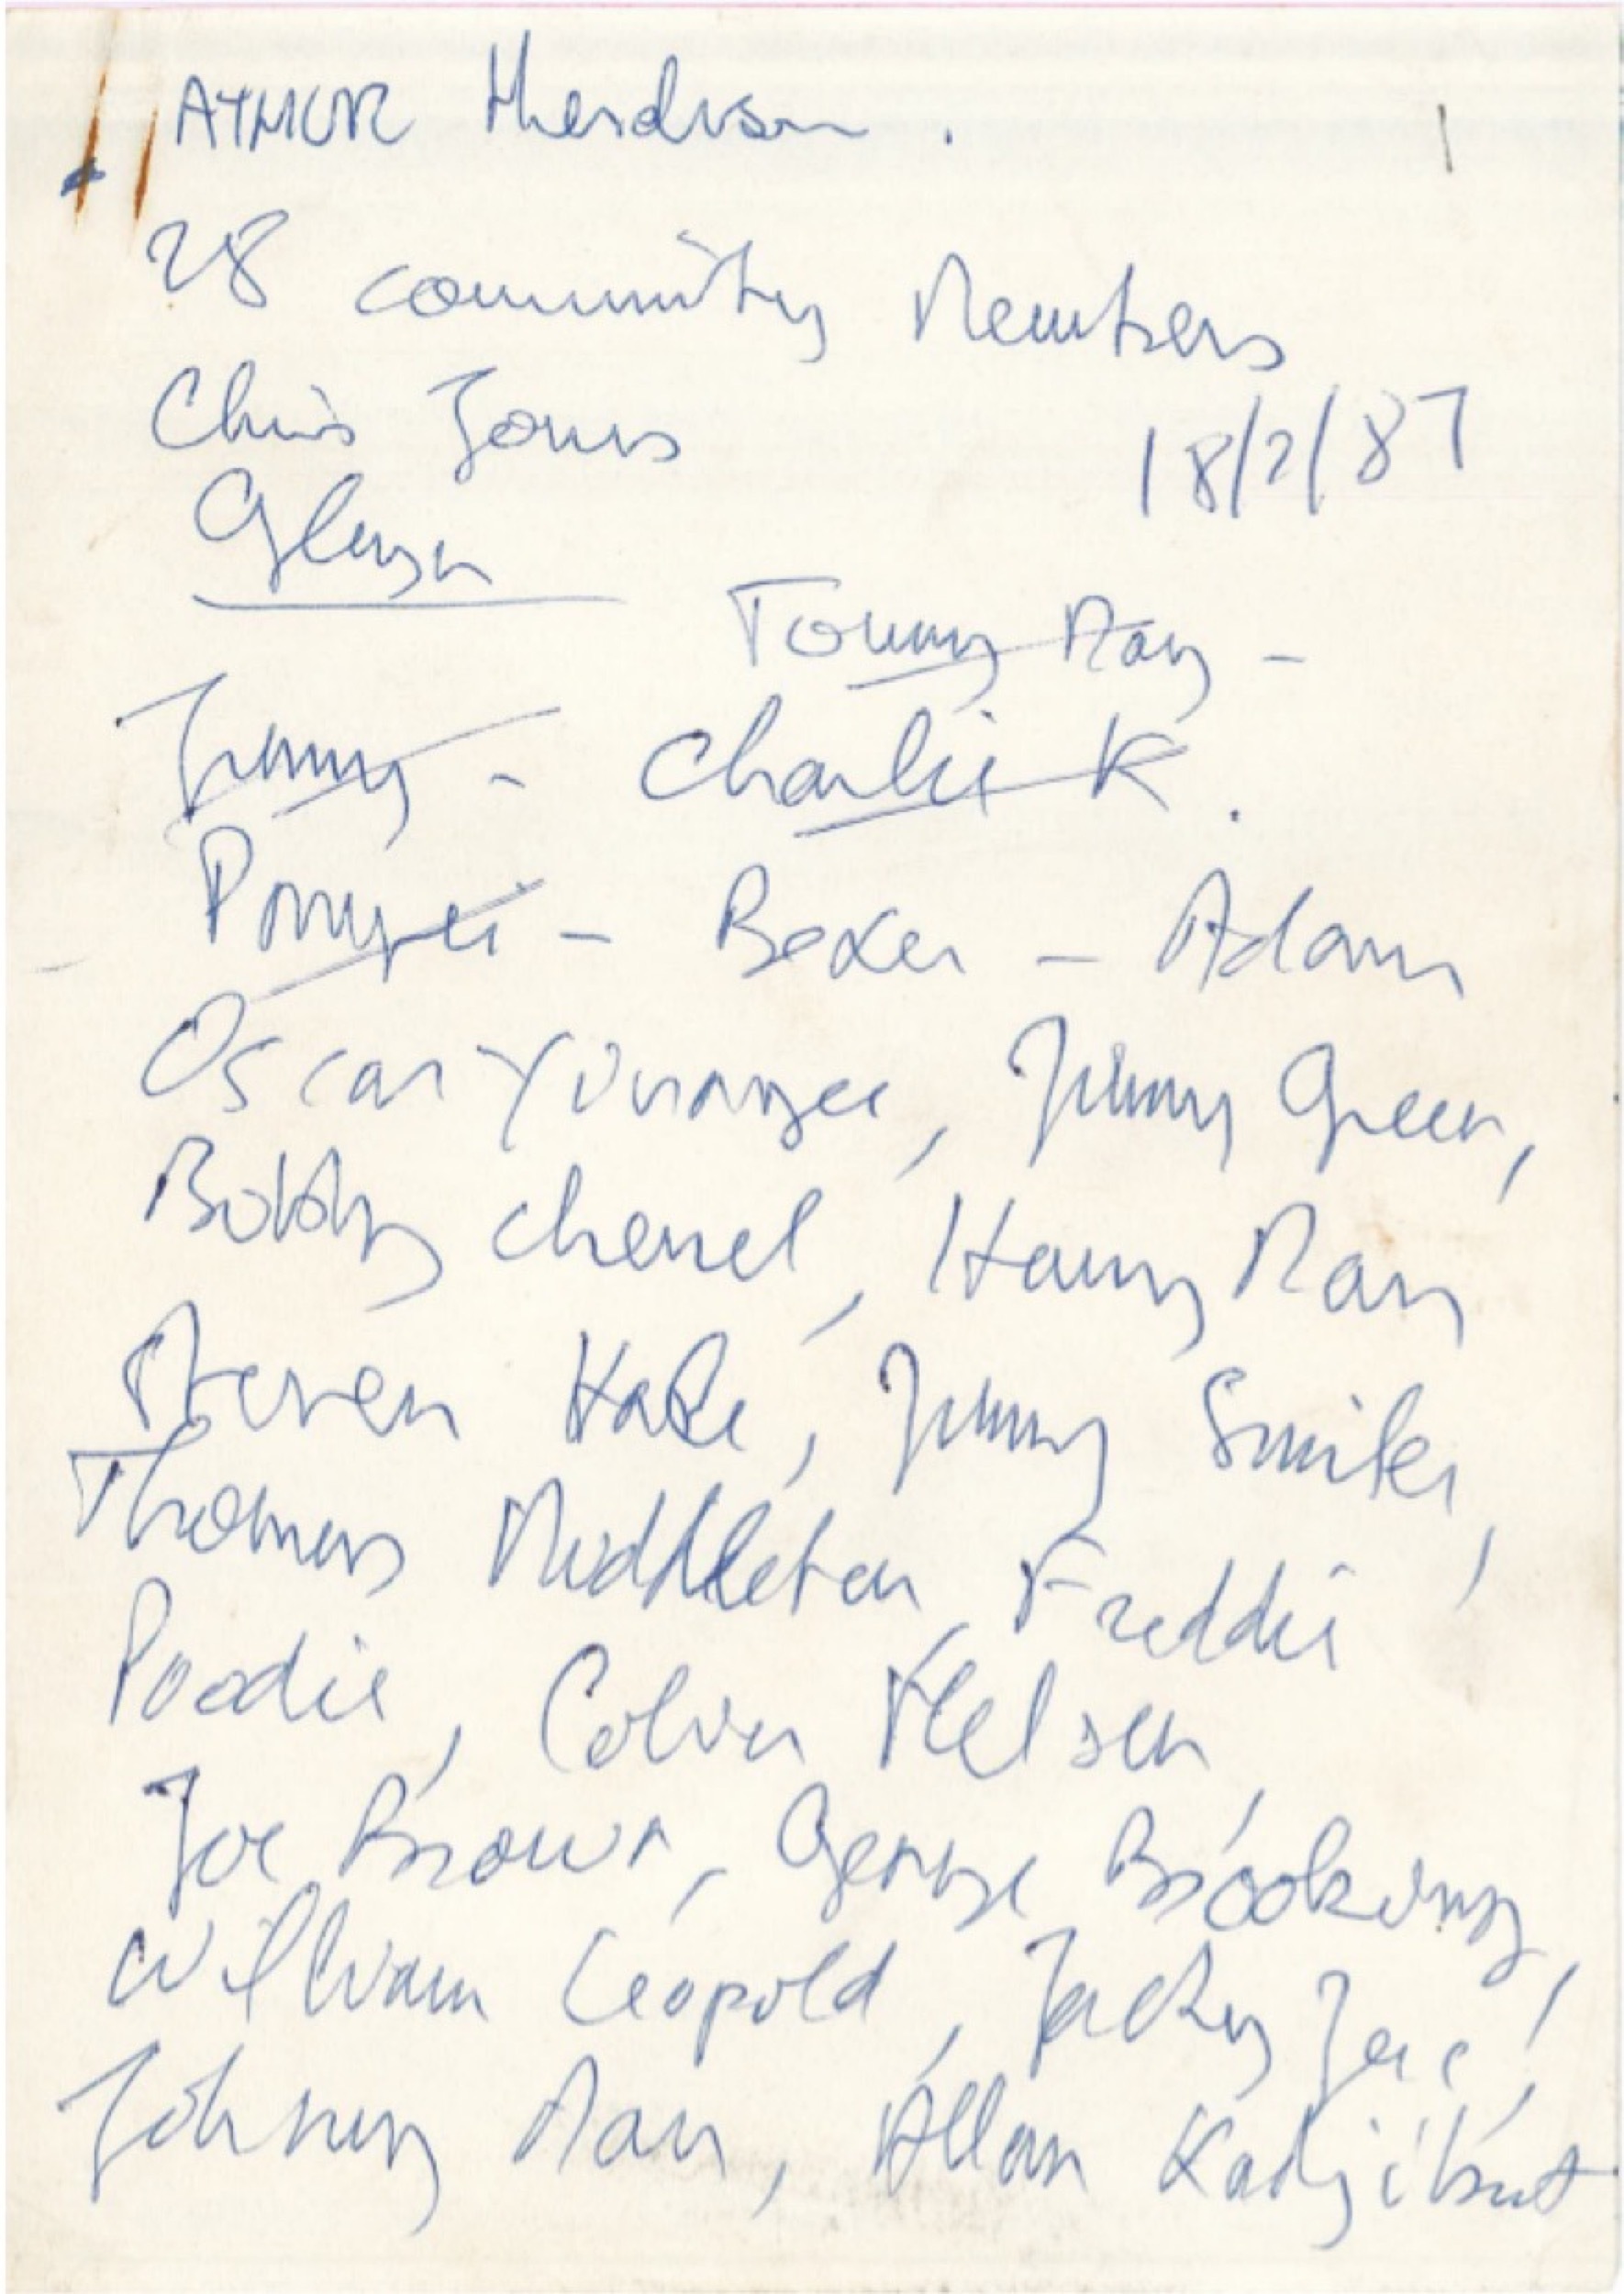 28 community Members
Chris Jones 18/2/87
Glenn
Tommy May -
Jimmy - Charlie K.
Pompei - Boxer - Adam
Oscar Yirrangee, Jimmy Green,
Bobby Cherel, Harry May
Steven Kale, Jimmy Smiler,
Thomas Middleton, Freddie
Poodie, Colin Nelson,
Joe Brown, George Brooking,
William Leopold, Jacky
Johnny May, Allan Kadjibut